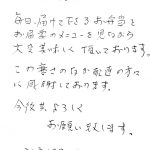 毎日、届けて下さるお弁当と
お届票のメニューを見ながら
大変美味しく頂いております。
この暑さのなか配達の方々
に感謝しております。
今後共よろしく
お願い致します。